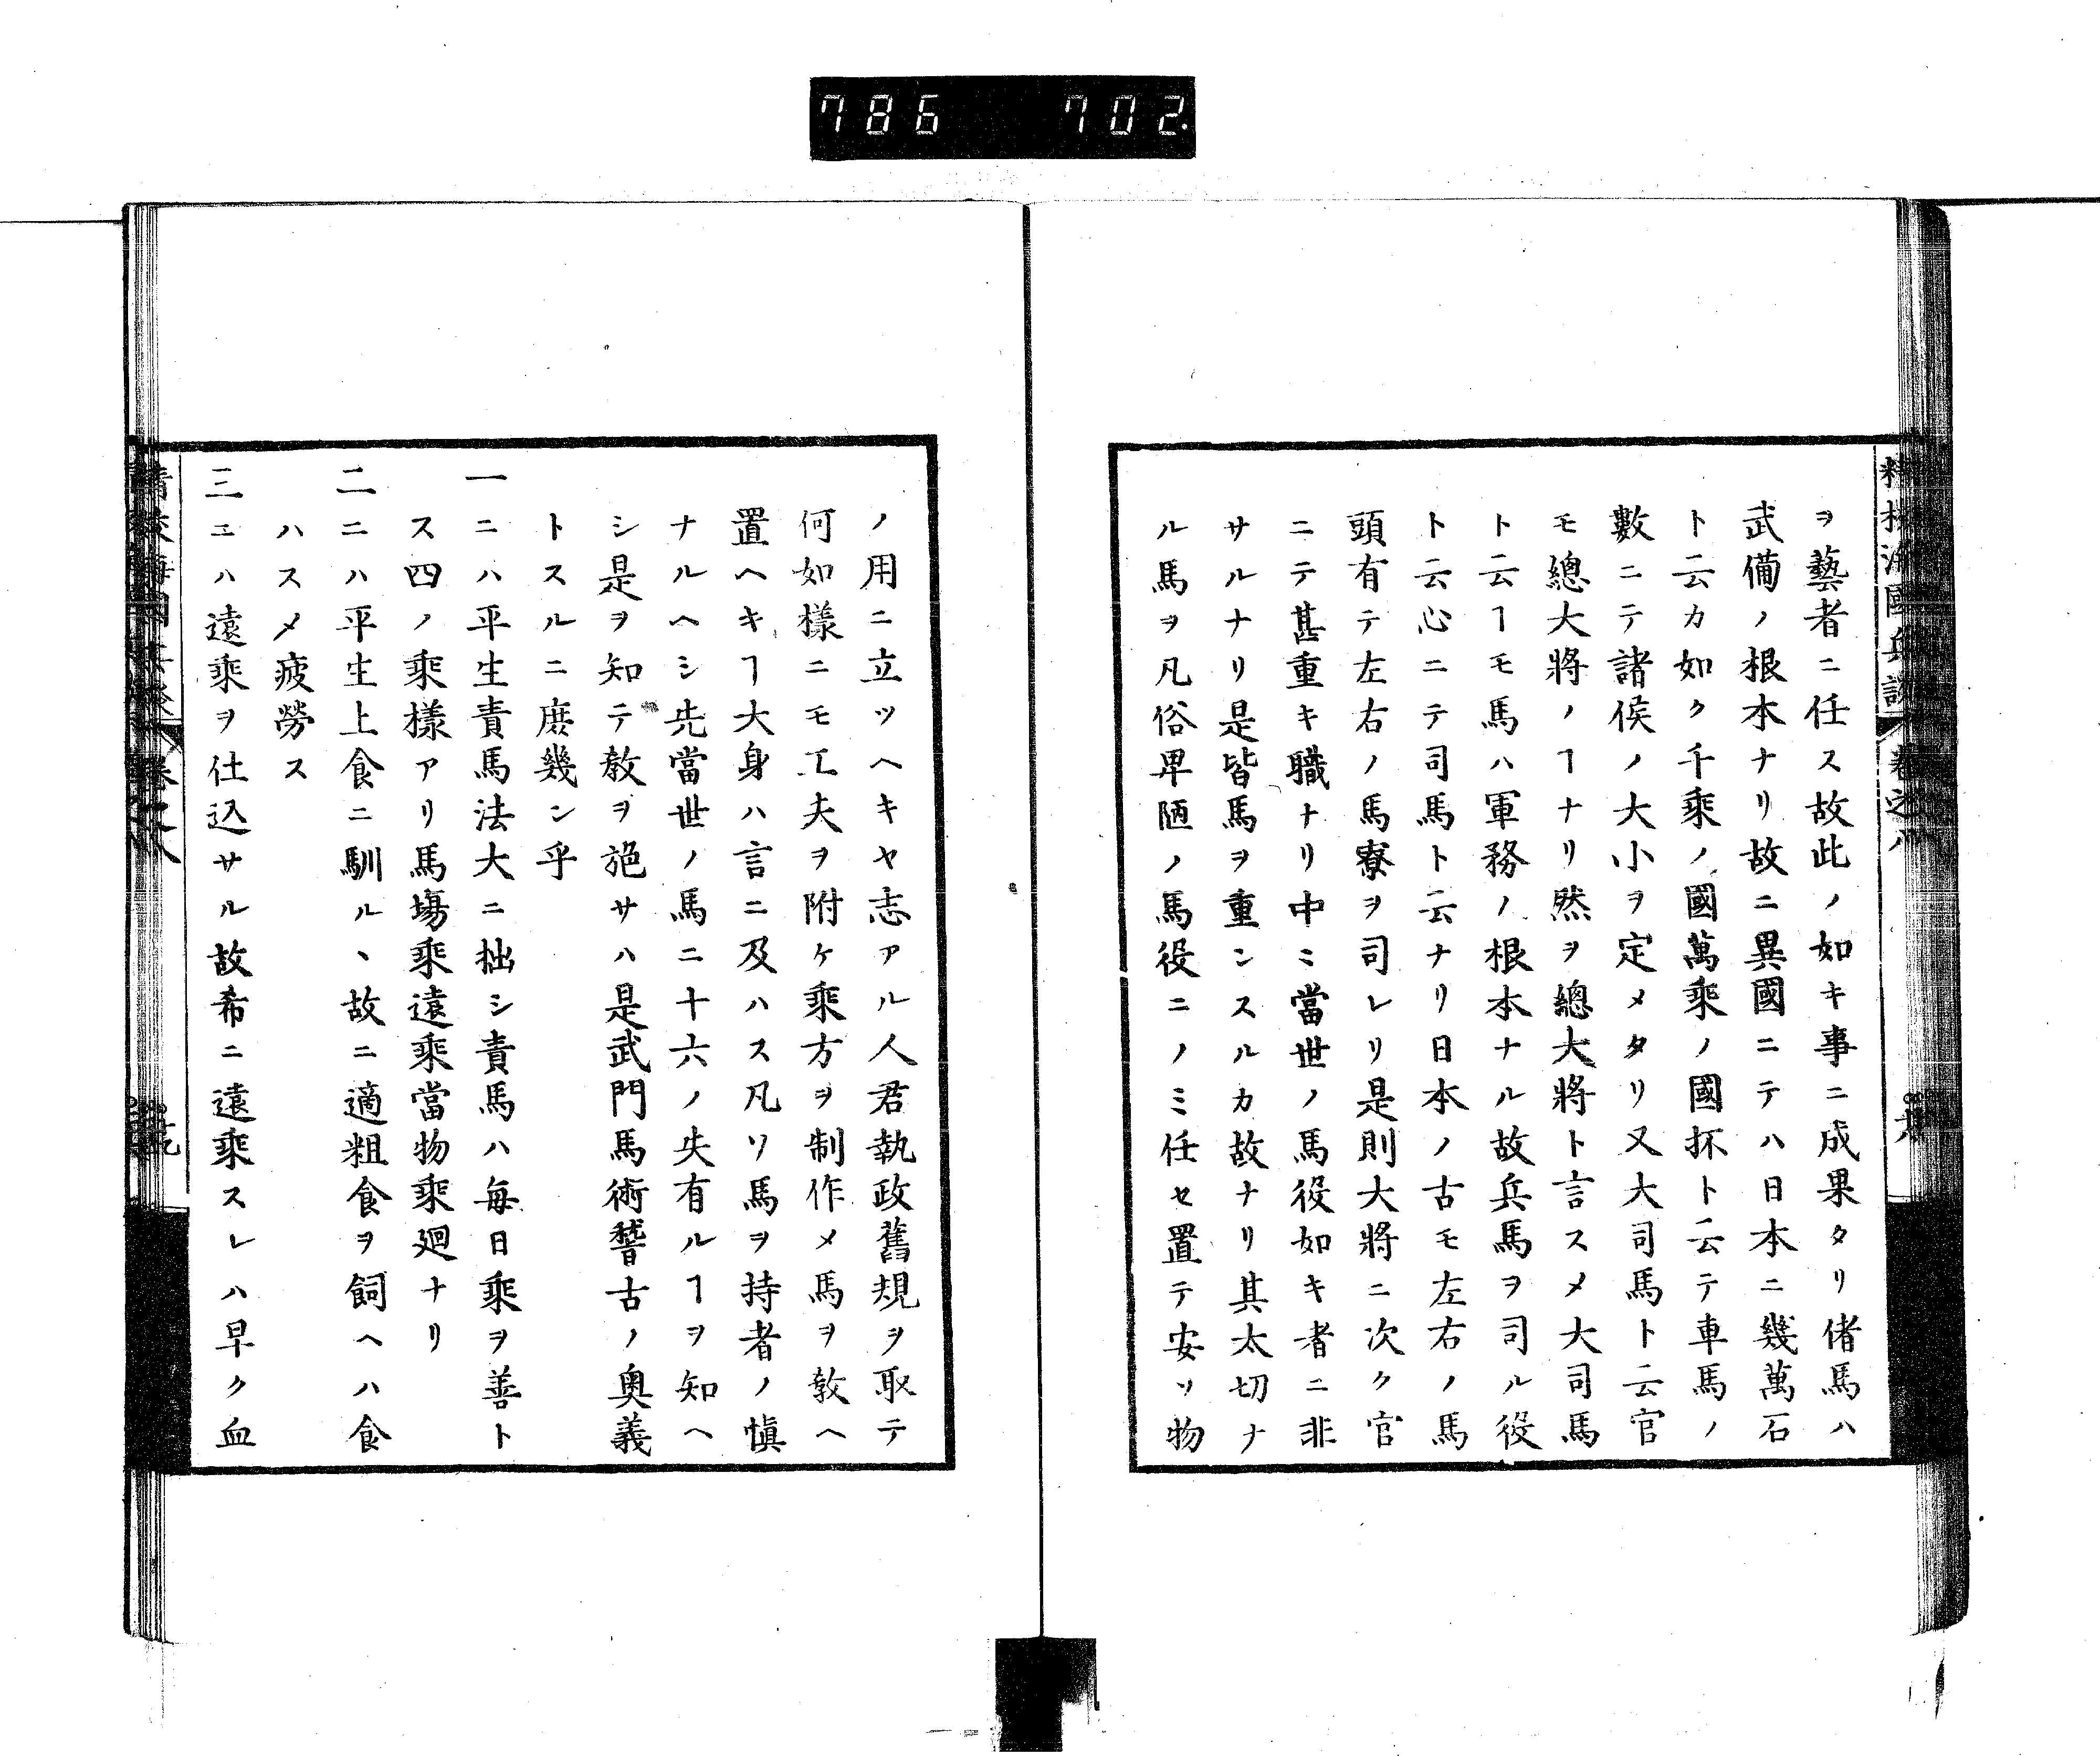 786 702.
ヲ藝者ニ任ス故此ノ如キ事ニ成果タリ偖馬ハ
武備ノ根本ナリ故ニ異國ニテハ日本ニ幾萬石
ト云カ如ク千乘ノ國萬乘ノ國抔ト云テ車馬ノ
數ニテ諸侯ノ大小ヲ定メタリ又大司馬ト云官
モ總大將ノヿナリ然ヲ總大將ト言スメ大司馬
ト云ヿモ馬ハ軍務ノ根本ナル故兵馬ヲ司ル役
ト云心ニテ司馬ト云ナリ日本ノ古モ左右ノ馬
頭有テ左右ノ馬寮ヲ司レリ是則大將ニ次ク官
ニテ甚重キ職ナリ中ミ當世ノ馬役如キ者ニ非
サルナリ是皆馬ヲ重ンスルカ故ナリ其太切ナ
ル馬ヲ凡俗卑陋ノ馬役ニノミ任セ置テ安ソ物
ノ用ニ立ツヘキヤ志アル人君執政舊規ヲ取テ
何如樣ニモ工夫ヲ附ケ乘方ヲ制作メ馬ヲ敎ヘ
置ヘキヿ大身ハ言ニ及ハス凡ソ馬ヲ持者ノ愼
ナルヘシ先當世ノ馬ニ十六ノ失有ルヿヲ知ヘ
シ是ヲ知テ敎ヲ施サハ是武門馬術督古ノ奧義
トスルニ庶幾ン乎
一ニハ平生責馬法大ニ拙シ責馬ハ每日乘ヲ善ト
ス四ノ乘樣アリ馬場乘遠乘當物乘廻ナリ
二ニハ平生上食ニ馴ルヽ故ニ適粗食ヲ飼ヘハ食
ハスメ疲勞ス
三ニハ遠乘ヲ仕込サル故希ニ遠乘スレハ早ク血